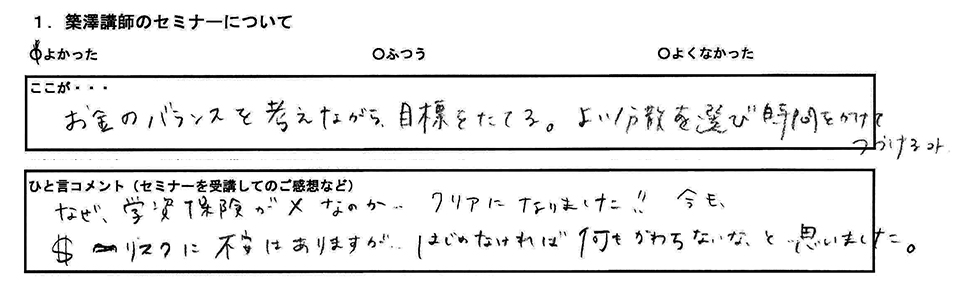 1. 築澤講師のセミナーについて
よかった ○ふつう ○よくなかった
ここが・・・
お金のバランスを考えながら、目標をたてる。よい分散を選び時間をかけて
つづけるコト
ひと言コメント（セミナーを受講してのご感想など）
なぜ、学資保険が×なのか‥ クリアになりました!! 今も、
$ リスクに不安はありますが‥ はじめなければ何もかわらないな、と思いました。